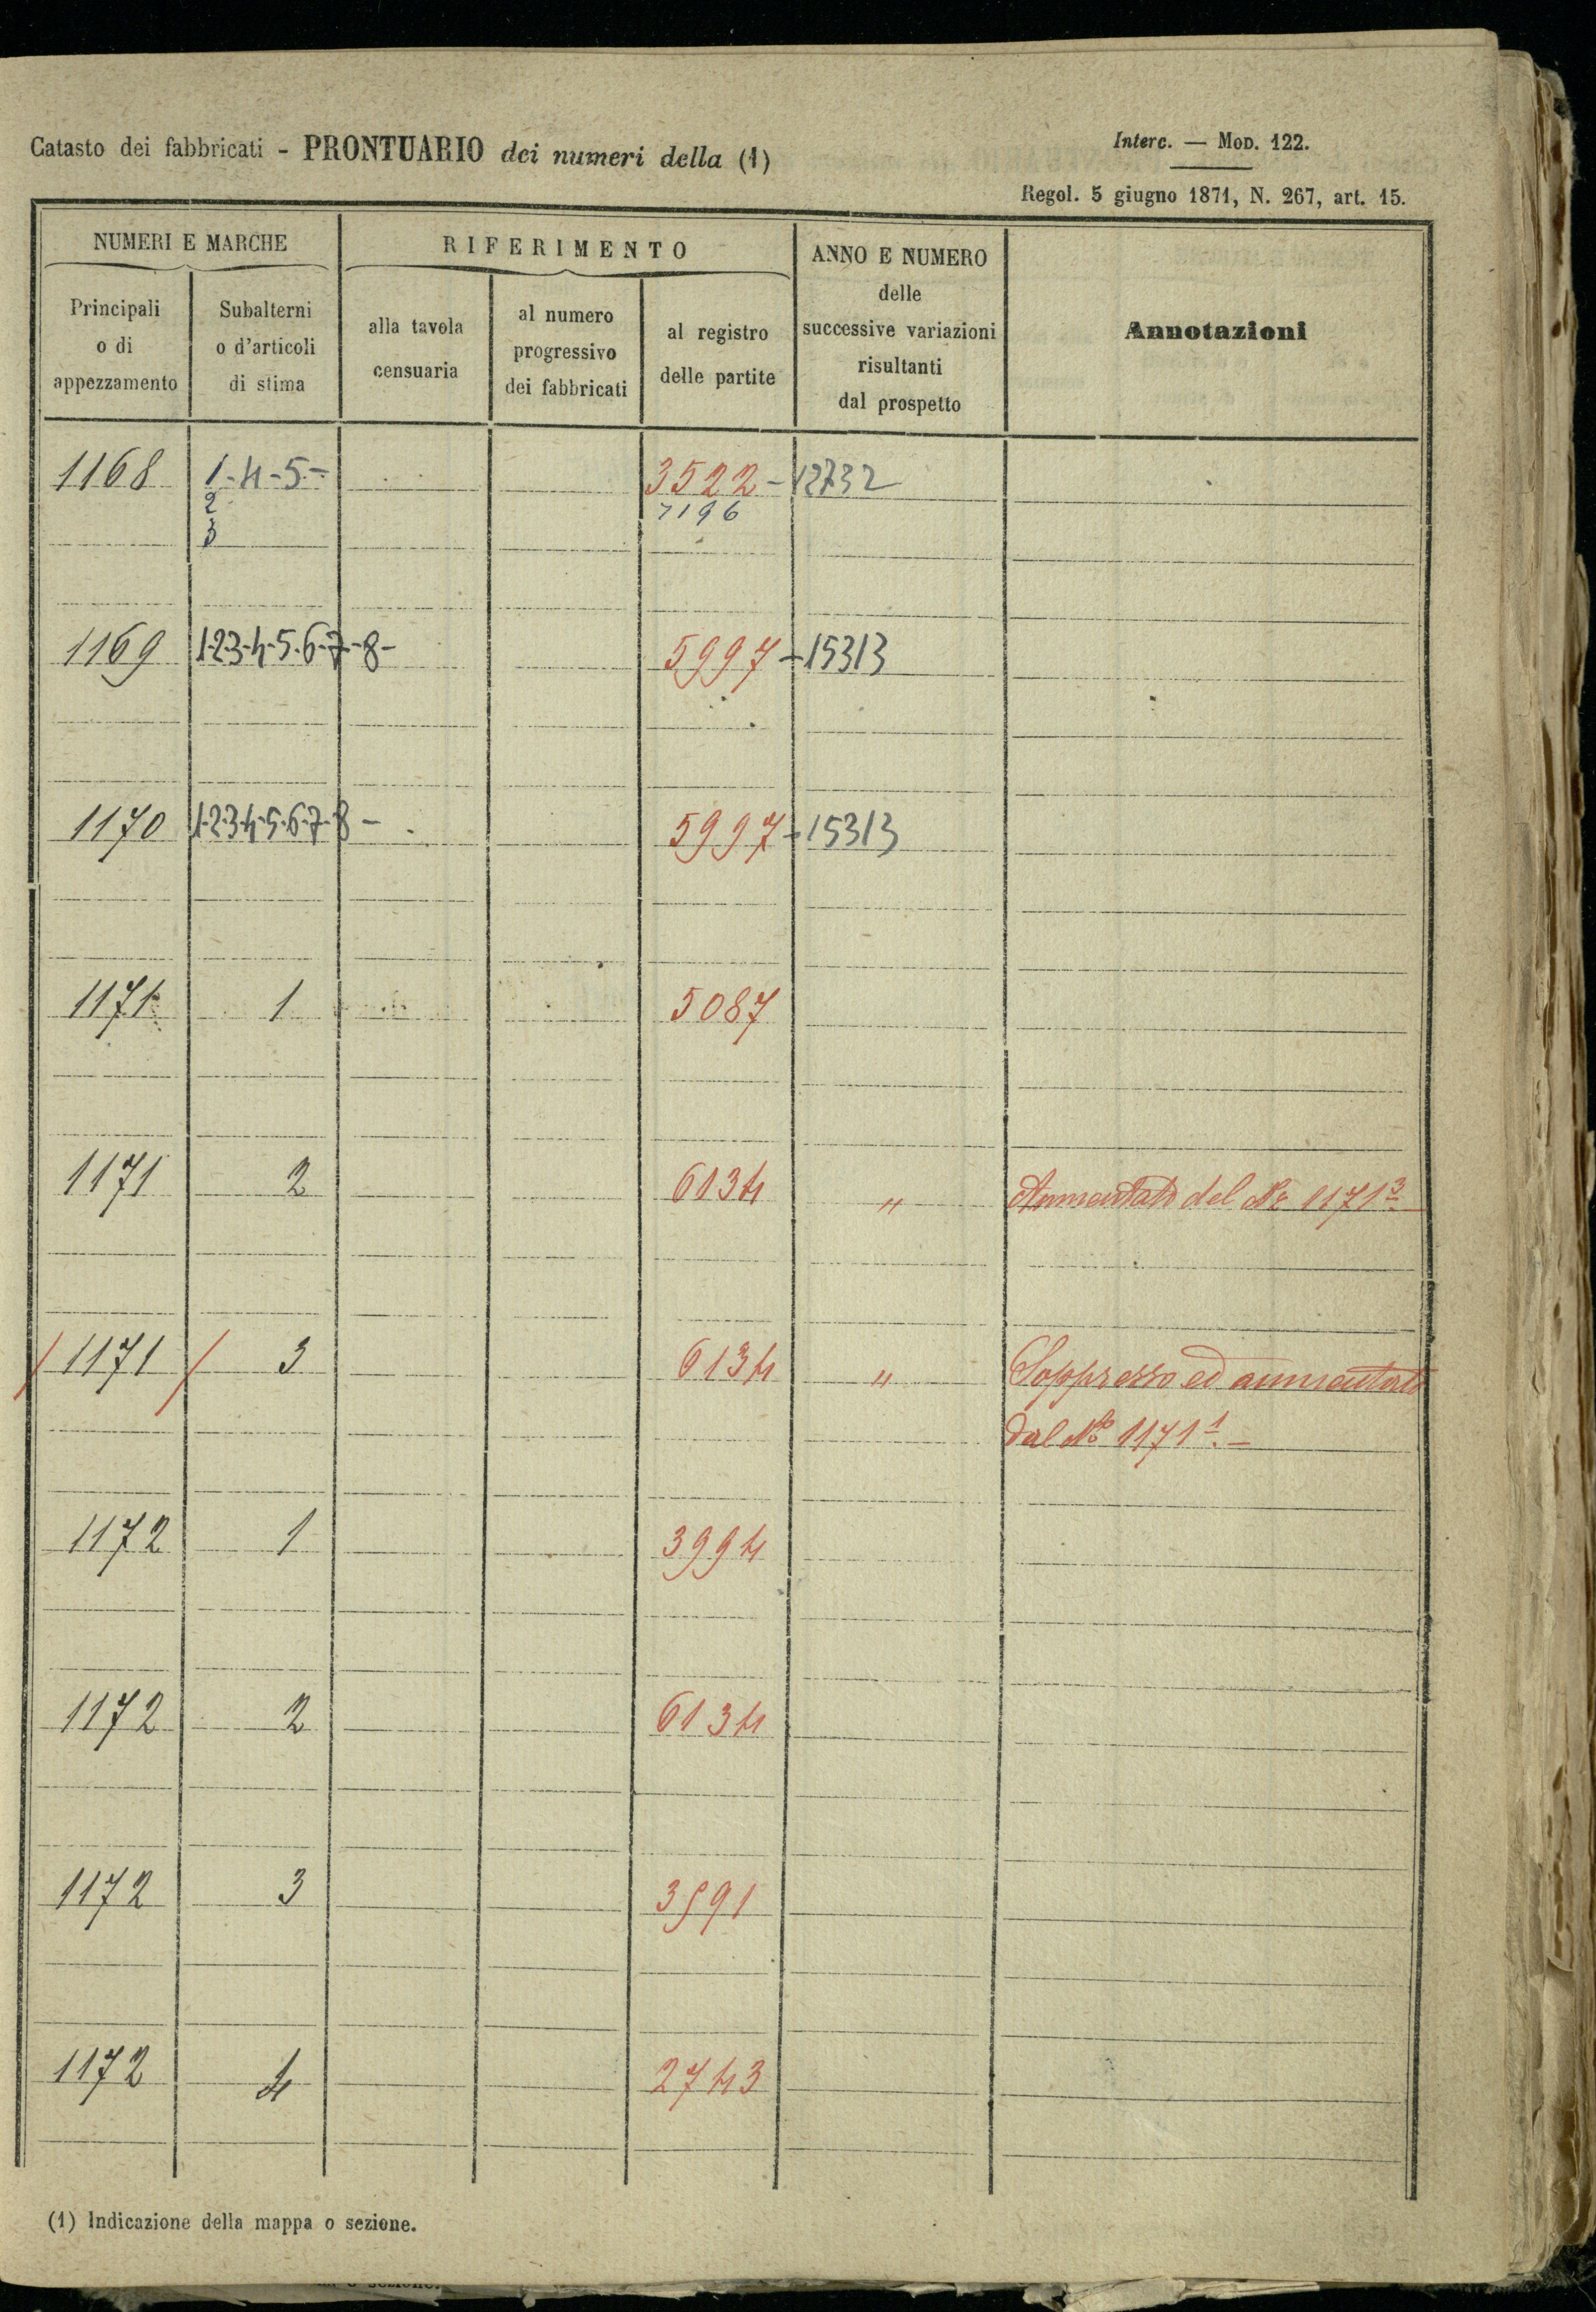 Catasto dei fabbricati - PRONTUARIO dei numeri della (1)
Interc. — Mod. 122.
Regol. 5 giugno 1871, N. 267, art. 15.
NUMERI E MARCHE
RIFERIMENTO
ANNO E NUMERO delle successive variazioni risultanti dal prospetto
Annotazioni
Principali o di appezzamento
Subalterni o d'articoli di stima
alla tavola censuaria
al numero progressivo dei fabbricati
al registro delle partite
1168 1-4-5- 3522 - 12732
2 7196
3
1169 1-2-3-4-5-6-7-8- 5997 - 15313
1170 1-2-3-4-5-6-7-8 - 5997 - 15313
1171 1 5087
1171 2 6134 " Aumentato del No 1171 3
1171 3 6134 " Soppresso ed aumentato
dal No 1171 1. -
1172 1 3994
1172 2 6134
1172 3
1172 4 2743
(1) Indicazione della mappa o sezione.